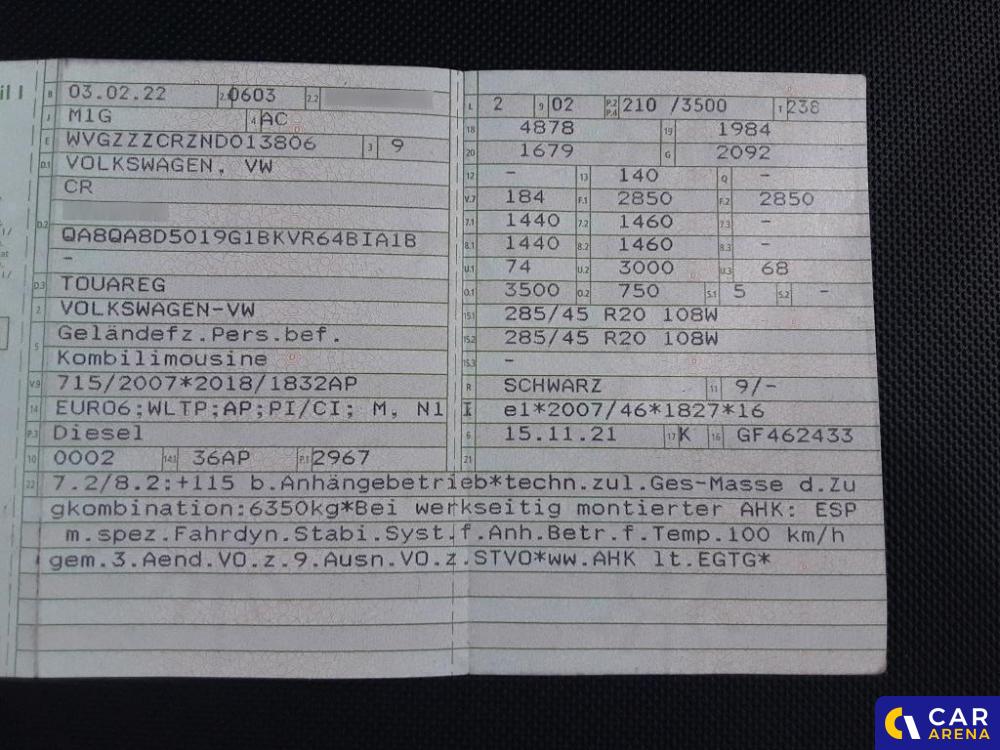 il I
B 03.02.22 2.1 0603 2.2
J M1G 4 AC
E WVGZZZCRZND013806 3 9
D.1 VOLKSWAGEN, VW
CR
D.2
QA8QA8D5019G1BKVR64BIA1B
-
D.3 TOUAREG
2 VOLKSWAGEN-VW
5 Geländefz.Pers.bef.
Kombilimousine
V.9 715/2007*2018/1832AP
14 EURO6;WLTP;AP;PI/CI; M, N1
P.3 Diesel
10 0002 14.1 36AP P.1 2967
L 2 9 02 P.2 P.4 210 /3500 T 238
18 4878 19 1984
20 1679 G 2092
12 - 13 140 Q -
V.7 184 F.1 2850 F.2 2850
7.1 1440 7.2 1460 7.3 -
8.1 1440 8.2 1460 8.3 -
U.1 74 U.2 3000 U.3 68
O.1 3500 O.2 750 S.1 5 S.2 -
15.1 285/45 R20 108W
15.2 285/45 R20 108W
15.3 -
R SCHWARZ 11 9/-
K e1*2007/46*1827*16
6 15.11.21 17 K 16 GF462433
21
22 7.2/8.2:+115 b.Anhängebetrieb*techn.zul.Ges-Masse d.Zu
gkombination:6350kg*Bei werkseitig montierter AHK: ESP
m.spez.Fahrdyn.Stabi.Syst.f.Anh.Betr.f.Temp.100 km/h
gem.3.Aend.VO.z.9.Ausn.VO.z.STVO*ww.AHK lt.EGTG*
CAR
ARENA